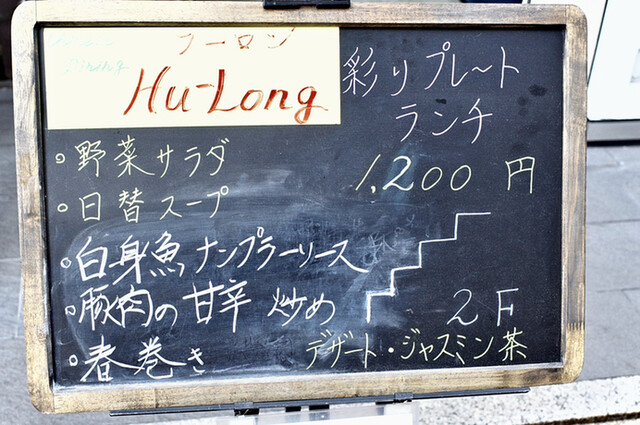 フーロン
Hu-Long
彩りプレート
ランチ
1,200円
・野菜サラダ
・日替スープ
・白身魚ナンプラーソース
・豚肉の甘辛炒め
・春巻き
2F
デザート・ジャスミン茶